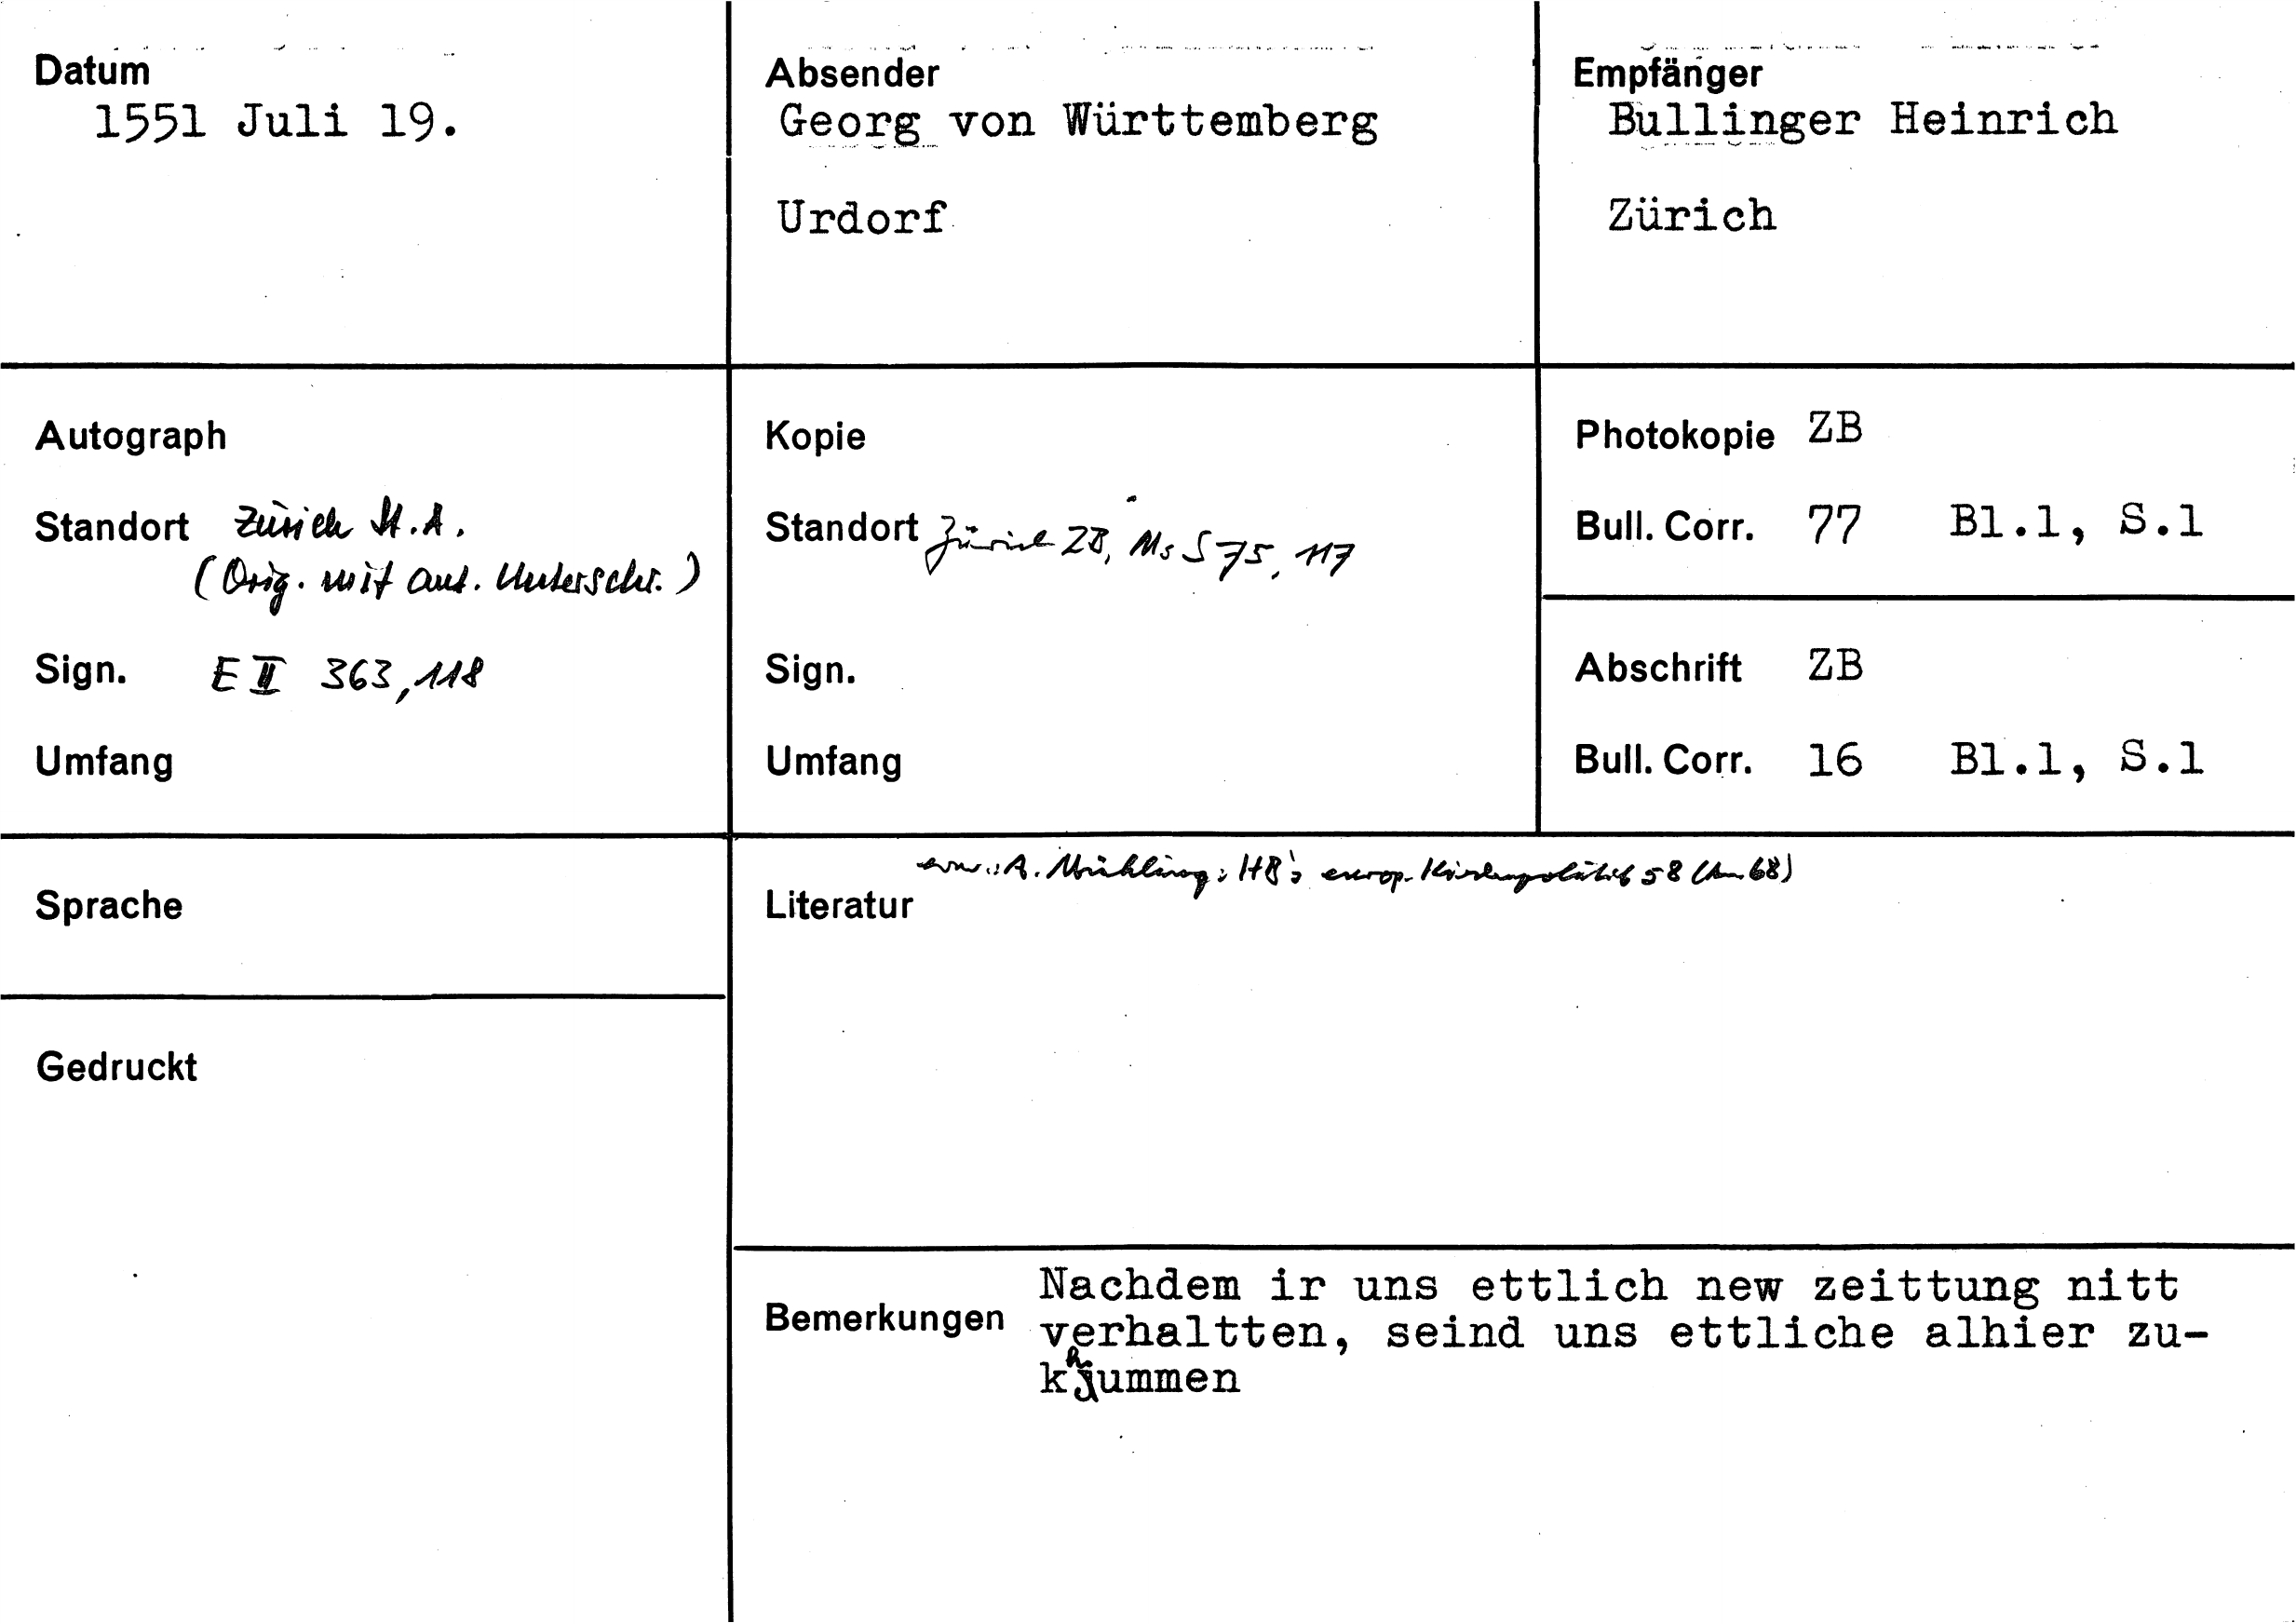 Datum
1551 Juli 19.
Absender
Georg von Württemberg
Urdorf
Empfänger
Bullinger Heinrich
Zürich
Autograph
Standort Zürich St.A.
(Orig. mit aut. Unterschr.)
Sign. E II 363,118
Umfang
Kopie
Standort Zürich ZB, Ms S 75, 117
Sign.
Umfang
Photokopie ZB
Bull. Corr. 77 Bl.1, S.1
Abschrift ZB
Bull. Corr. 16 Bl.1, S.1
Sprache
Gedruckt
A. Mühling: HB's europ. Kirchenpolitik 58 (Anm 68)
Literatur
Bemerkungen
Nachdem ir uns ettlich new zeittung nitt
verhaltten, seind uns ettliche alhier zu-
khummen